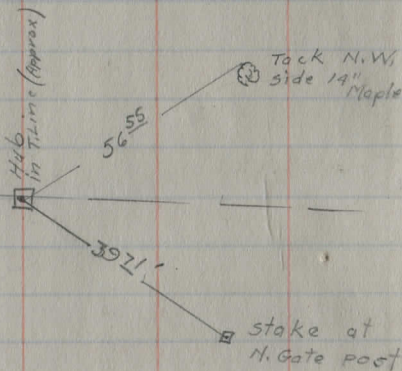 Hub
in T.Line (Approx)
Tack N.W.
side 14"
Maple
56 55
3971'
stake at
N. Gate post